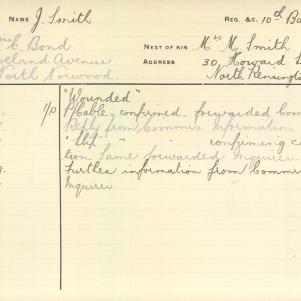 NAME J. Smith
REG. &c. 10th Ba
C. Bond.
eland Avenue
North Norwood
NEXT OF KIN Mrs M. Smith
ADDRESS 30, Howard
North Kensington
"Wounded"
P/Cable, confirmed, forwarded Com
Reply from Commis. Information.
" - - confirming ca
tion Same forwarded Inquirer.
Further information from Comm
Inquirer